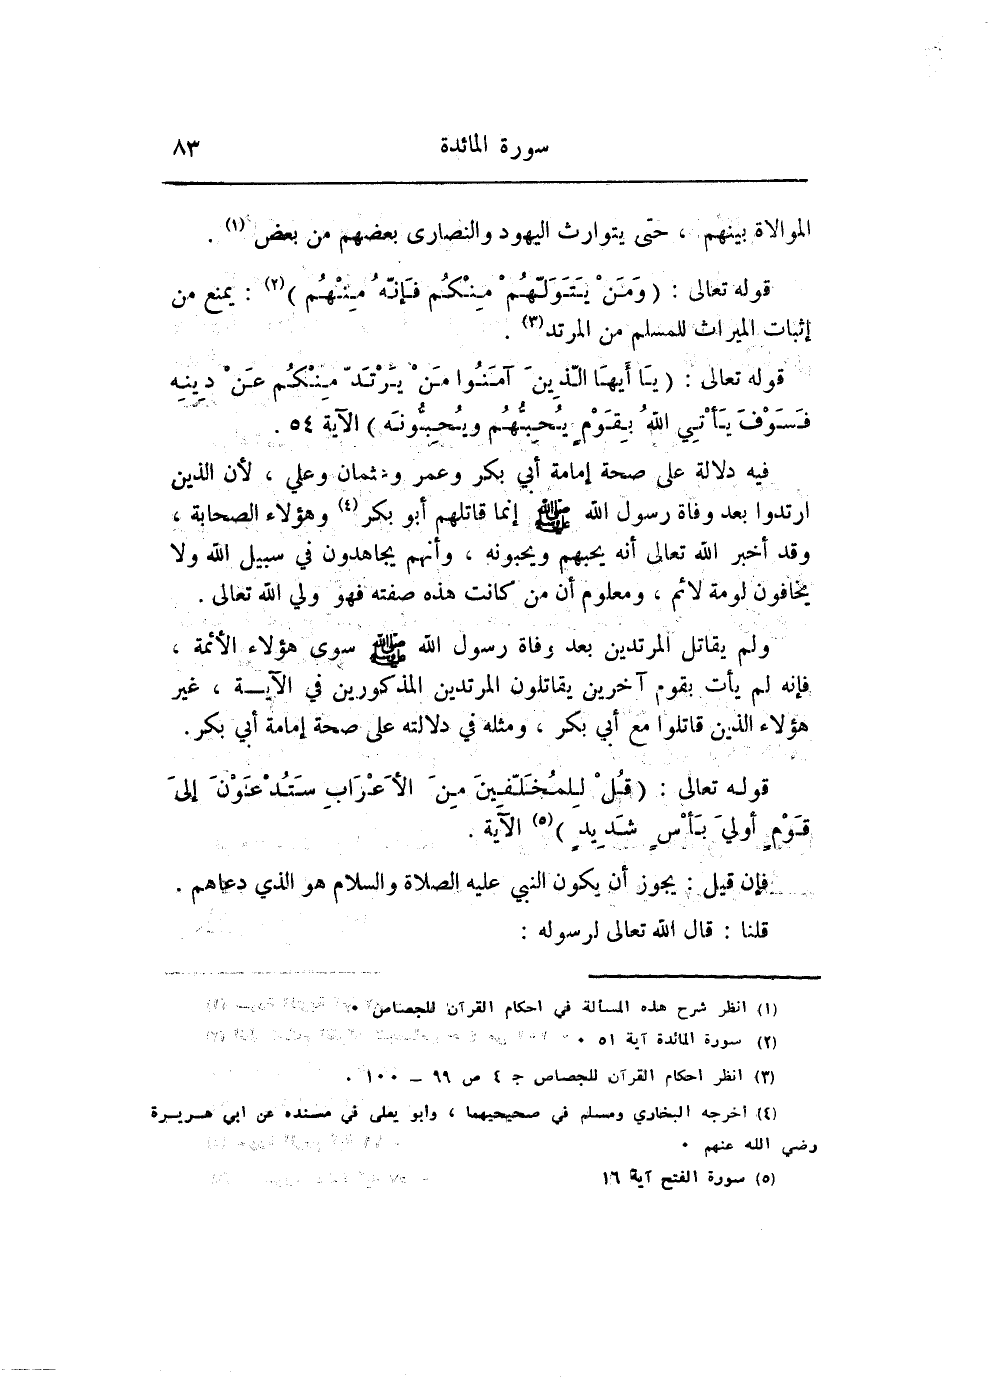 سورة المائدة ٨٣
الموالاة بينهم ، حتى يتوارث اليهود والنصارى بعضهم من بعض (١) .
قوله تعالى : ( وَمَنْ يَتَوَلّهُمْ مِنْكُم فَإنّهُ مِنْهُم )(٢) : يمنع من
إثبات الميراث للمسلم من المرتد(٣) .
قوله تعالى : ( يَا أَيهَا الّذِينَ آمَنُوا مَنْ يَرْتَدّ مِنْكُم عَنْ دِينِه
فَسَوْفَ يَأْتي اللهُ بِقَوْمٍ يُحِبُّهُم ويُحِبُّونَه ) الآية ٥٤ .
فيه دلالة على صحة إمامة أبي بكر وعمر وعثمان وعلي ، لأن الذين
ارتدوا بعد وفاة رسول الله ﷺ إنما قاتلهم أبو بكر(٤) وهؤلاء الصحابة ،
وقد أخبر الله تعالى أنه يحبهم ويحبونه ، وأنهم يجاهدون في سبيل الله ولا
يخافون لومة لائم ، ومعلوم أن من كانت هذه صفته فهو ولي الله تعالى .
ولم يقاتل المرتدين بعد وفاة رسول الله ﷺ سوى هؤلاء الأئمة ،
فإنه لم يأت بقوم آخرين يقاتلون المرتدين المذكورين في الآيــة ، غير
هؤلاء الذين قاتلوا مع أبي بكر ، ومثله في دلالته على صحة إمامة أبي بكر.
قوله تعالى : ( قُلْ لِلمُخَلّفِينَ مِنَ الأَعْرَابِ سَتُدْعَوْنَ إلىَ
قَوْمٍ أولي بَأْسٍ شَدِيدٍ )(٥) الآية .
فإن قيل : يجوز أن يكون النبي عليه الصلاة والسلام هو الذي دعاهم .
قلنا : قال الله تعالى لرسوله :
(١) انظر شرح هذه المسألة في احكام القرآن للجصاص ٠
(٢) سورة المائدة آية ٥١ ٠
(٣) انظر احكام القرآن للجصاص جـ ٤ ص ٩٩ ــ ١٠٠ ٠
(٤) اخرجه البخاري ومسلم في صحيحيهما ، وابو يعلى في مسنده عن ابي هــريــرة
رضي الله عنهم ٠
(٥) سورة الفتح آية ١٦